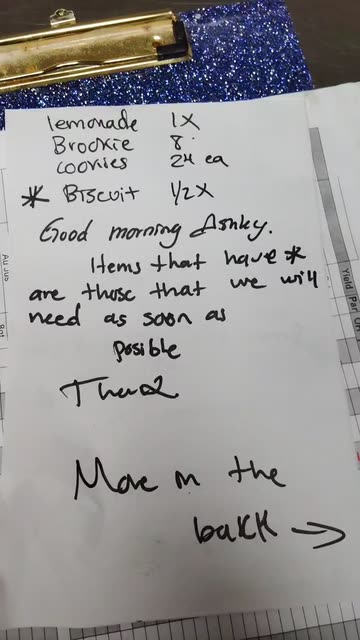 lemonade 1X
Brookie 8
cookies 24 ea
* Biscuit 1/2X
Good morning Ashley.
Items that have *
are those that we will
need as soon as
posible
More on the
bakk →
Yield Per